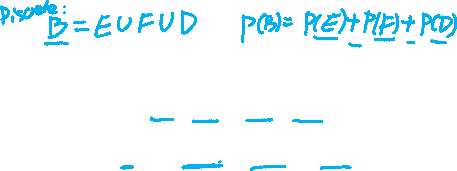 Discrete: B = E ∪ F ∪ D P(B) = P(E) + P(F) + P(D)